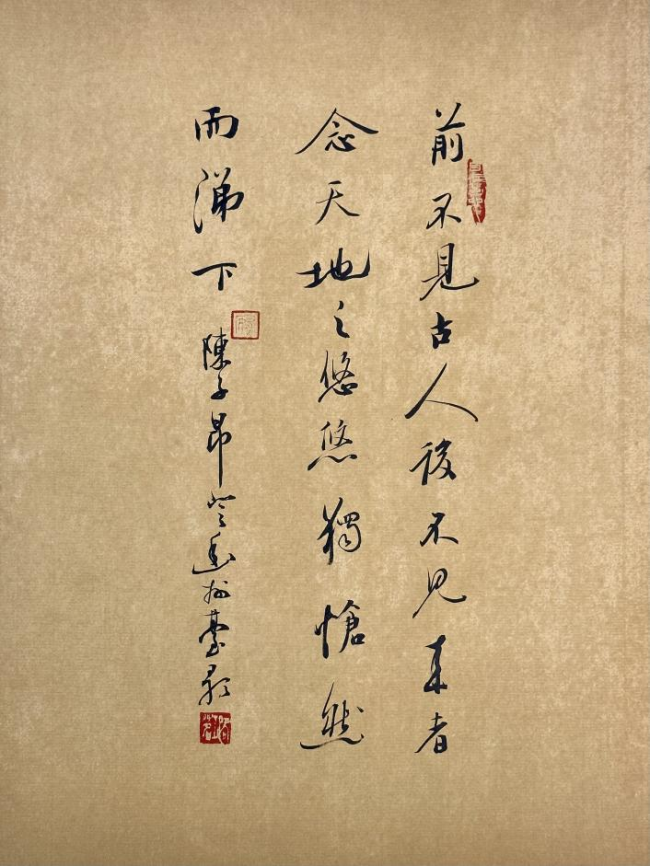 前不見古人後不見来者
念天地之悠悠獨愴然
而涕下
陳子昂登幽州臺歌